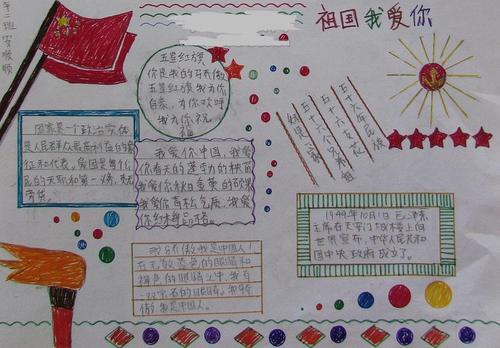 祖国我爱你
五星红旗
你是我的
五星红旗我为你
自豪，为你欢呼
我为你祝
福
五十六个民族
五十六支花
五十六个兄弟
国家是一个政治实体
是人民群众最高利益的象
征和代表，爱国是每个公
民的天职和第一
我爱你中国，我爱
你春天蓬勃的秧苗
我爱你秋日金黄的硕果
我爱你青松气质，我爱
你红梅品格。
我骄傲我是中国人！
在无数蓝色的眼睛和
褐色的眼睛之中，我有
我骄
傲，我是中国人。
1949年10月1日毛泽东
主席在天安门城楼上向
世界宣布，中华人民共和
国中央政府成立了。